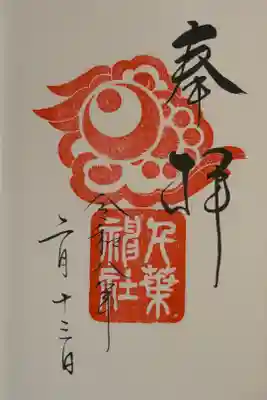 奉拝
千葉
神社
令和八年
二月十三日